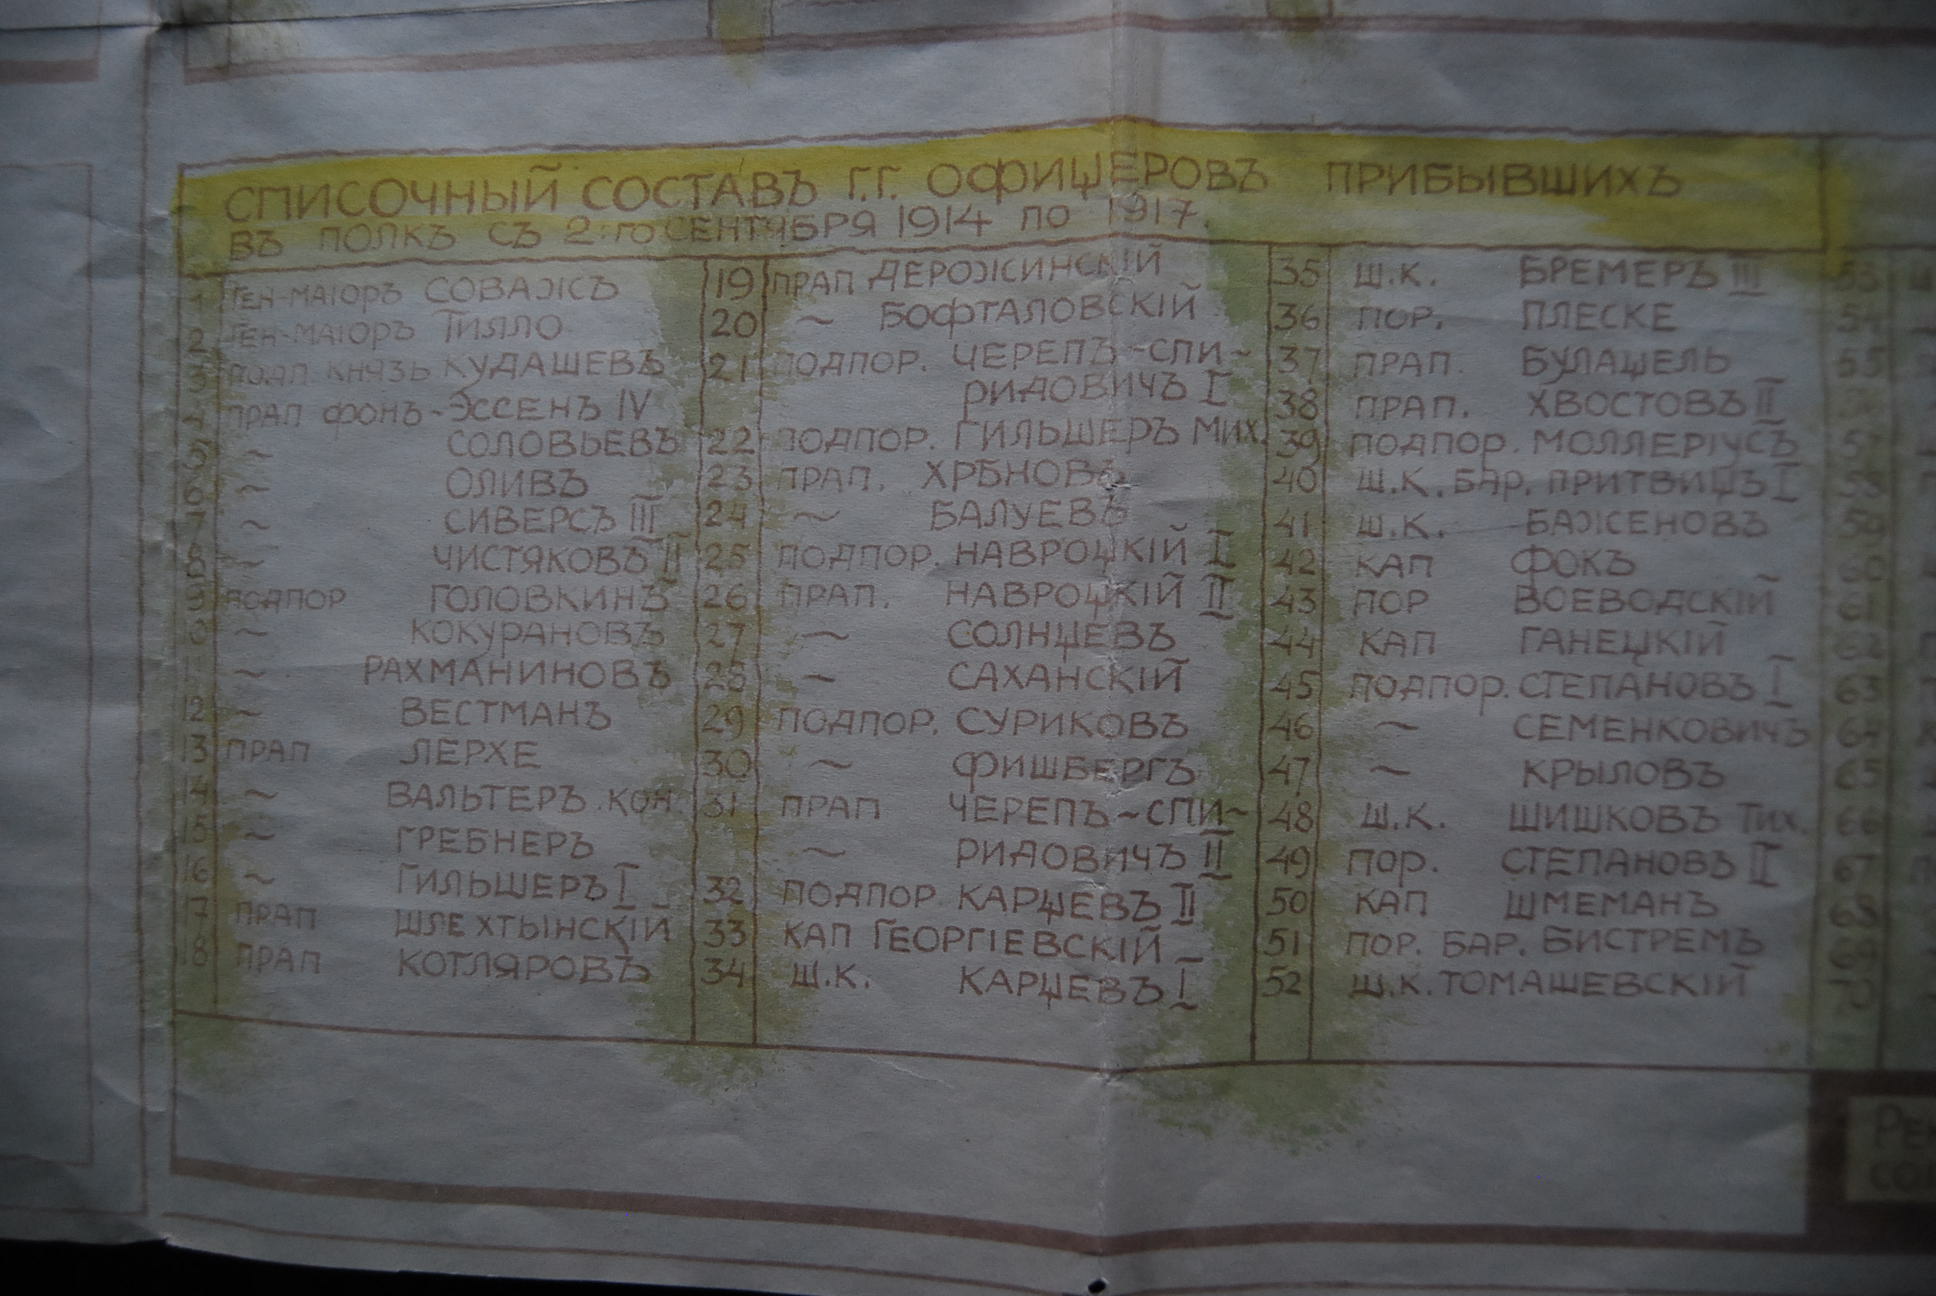 СПИСОЧНЫЙ СОСТАВЪ Г.Г. ОФИЦЕРОВЪ ПРИБЫВШИХЪ
ВЪ ПОЛКЪ СЪ 2-ГО СЕНТЯБРЯ 1914 ПО 1917.
1 ГЕН-МАІОРЪ СОВАЖЪ
2 ГЕН-МАІОРЪ ТИЛЛО
3 ПОДП. КНЯЗЬ КУДАШЕВЪ
4 ПРАП ФОНЪ-ЭССЕНЪ IV
5 ~ СОЛОВЬЕВЪ
6 ~ ОЛИВЪ
7 ~ СИВЕРСЪ III
8 ~ ЧИСТЯКОВЪ II
9 ПОДПОР ГОЛОВКИНЪ
10 ~ КОКУРАНОВЪ
11 ~ РАХМАНИНОВЪ
12 ~ ВЕСТМАНЪ
13 ПРАП ЛЕРХЕ
14 ~ ВАЛЬТЕРЪ. КОН.
15 ~ ГРЕБНЕРЪ
16 ~ ГИЛЬШЕРЪ I
17 ПРАП ШЛЕХТЫНСКІЙ
18 ПРАП КОТЛЯРОВЪ
19 ПРАП ДЕРОЖИНСКІЙ
20 ~ БОФТАЛОВСКІЙ
21 ПОДПОР. ЧЕРЕПЪ-СПИ-
РИДОВИЧЪ I
22 ПОДПОР. ГИЛЬШЕРЪ МИХ.
23 ПРАП. ХРѢНОВЪ
24 ~ БАЛУЕВЪ
25 ПОДПОР. НАВРОЦКІЙ I
26 ПРАП. НАВРОЦКІЙ II
27 ~ СОЛНЦЕВЪ
28 ~ САХАНСКІЙ
29 ПОДПОР. СУРИКОВЪ
30 ~ ФИШБЕРГЪ
31 ПРАП ЧЕРЕПЪ-СПИ-
~ РИДОВИЧЪ II
32 ПОДПОР. КАРЦЕВЪ II
33 КАП ГЕОРГІЕВСКІЙ
34 Ш.К. КАРЦЕВЪ I
35 Ш.К. БРЕМЕРЪ III
36 ПОР. ПЛЕСКЕ
37 ПРАП. БУЛАЦЕЛЬ
38 ПРАП. ХВОСТОВЪ II
39 ПОДПОР. МОЛЛЕРІУСЪ
40 Ш.К. БАР. ПРИТВИЦЪ I
41 Ш.К. БАЖЕНОВЪ
42 КАП ФОКЪ
43 ПОР ВОЕВОДСКІЙ
44 КАП ГАНЕЦКІЙ
45 ПОДПОР. СТЕПАНОВЪ I
46 ~ СЕМЕНКОВИЧЪ
47 ~ КРЫЛОВЪ
48 Ш.К. ШИШКОВЪ ТИХ.
49 ПОР. СТЕПАНОВЪ II
50 КАП ШМЕМАНЪ
51 ПОР. БАР. БИСТРЕМЪ
52 Ш.К. ТОМАШЕВСКІЙ
53
54
55
57
58
59
60
61
62
63
64
65
66
67
68
69
70